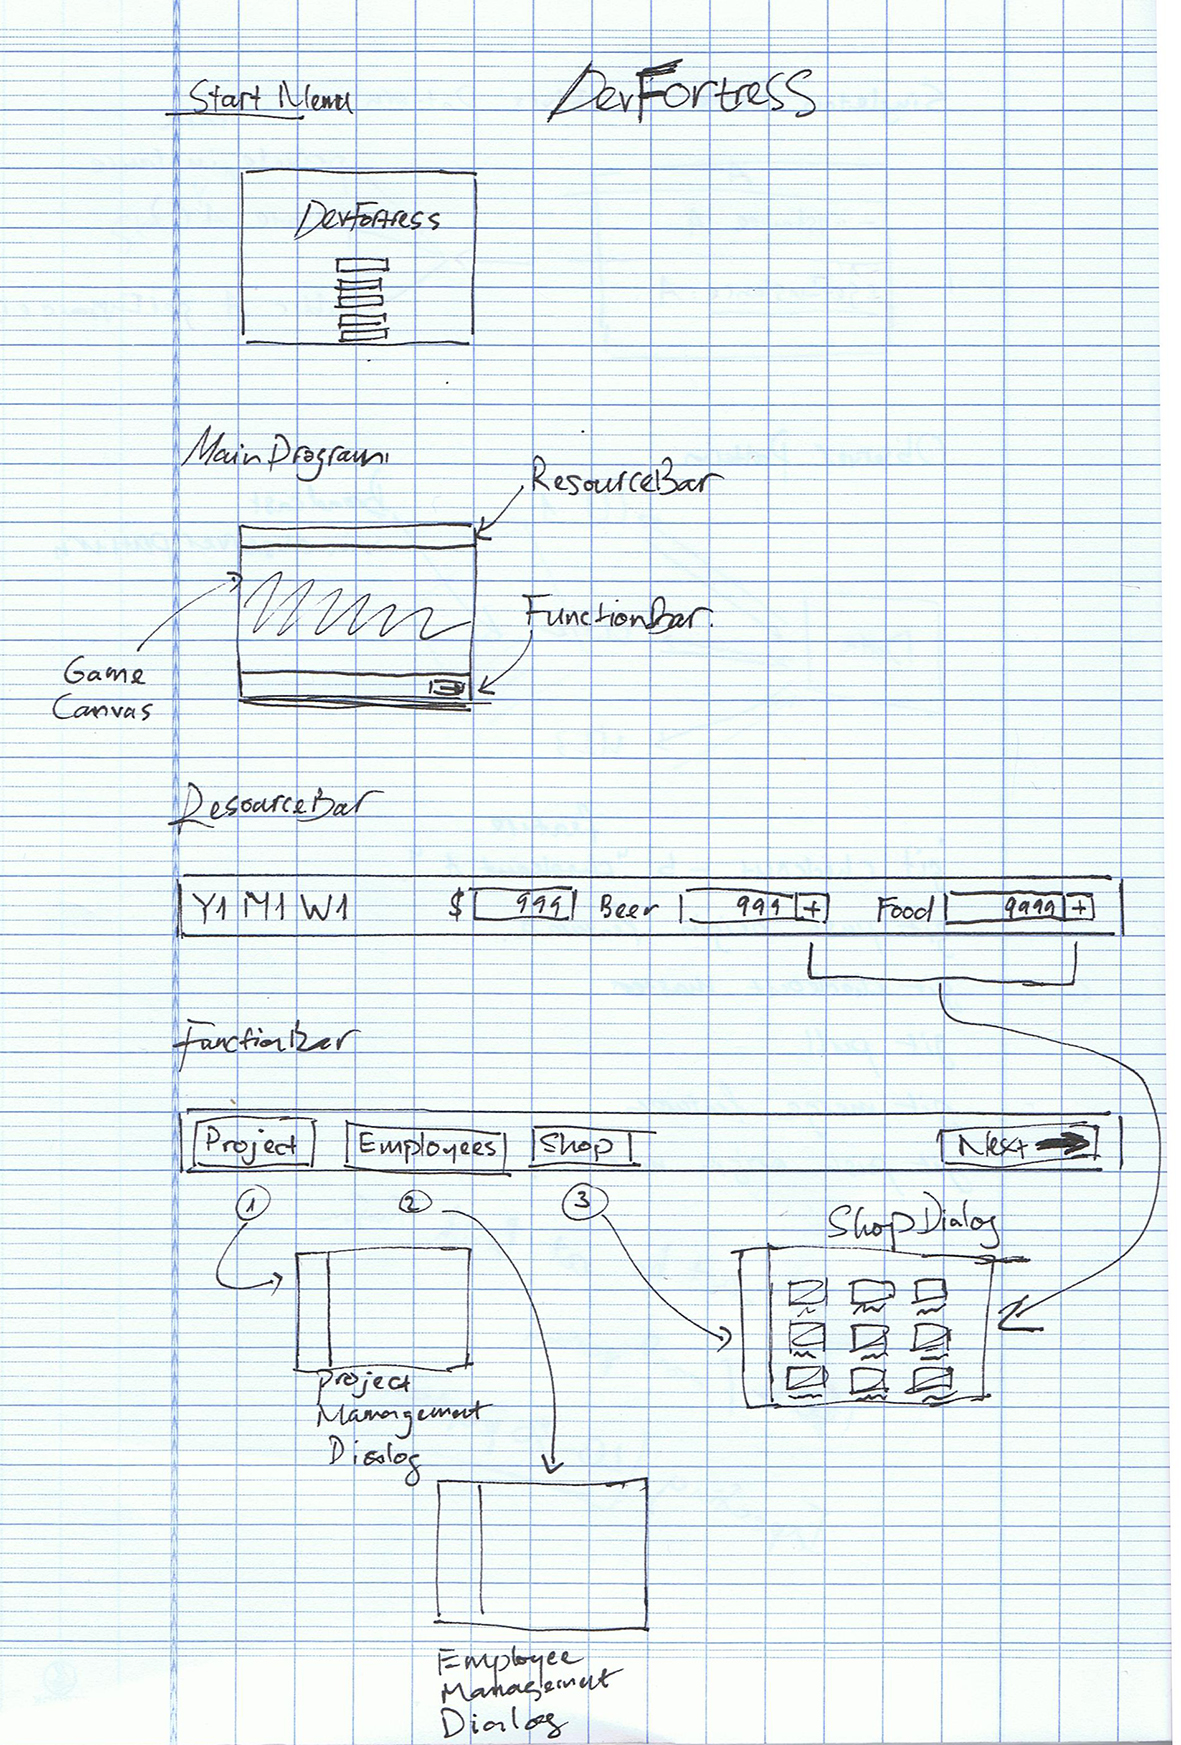 Start Menu
DevFortress
DevFortress
MainProgram
ResourceBar
FunctionBar.
Game
Canvas
ResourceBar
Y1 M1 W1 $ 999 Beer 999 + Food 9999 +
FunctionBar
Project Employees Shop Next
1 2 3
ShopDialog
Project
Management
Dialog
Employee
Management
Dialog